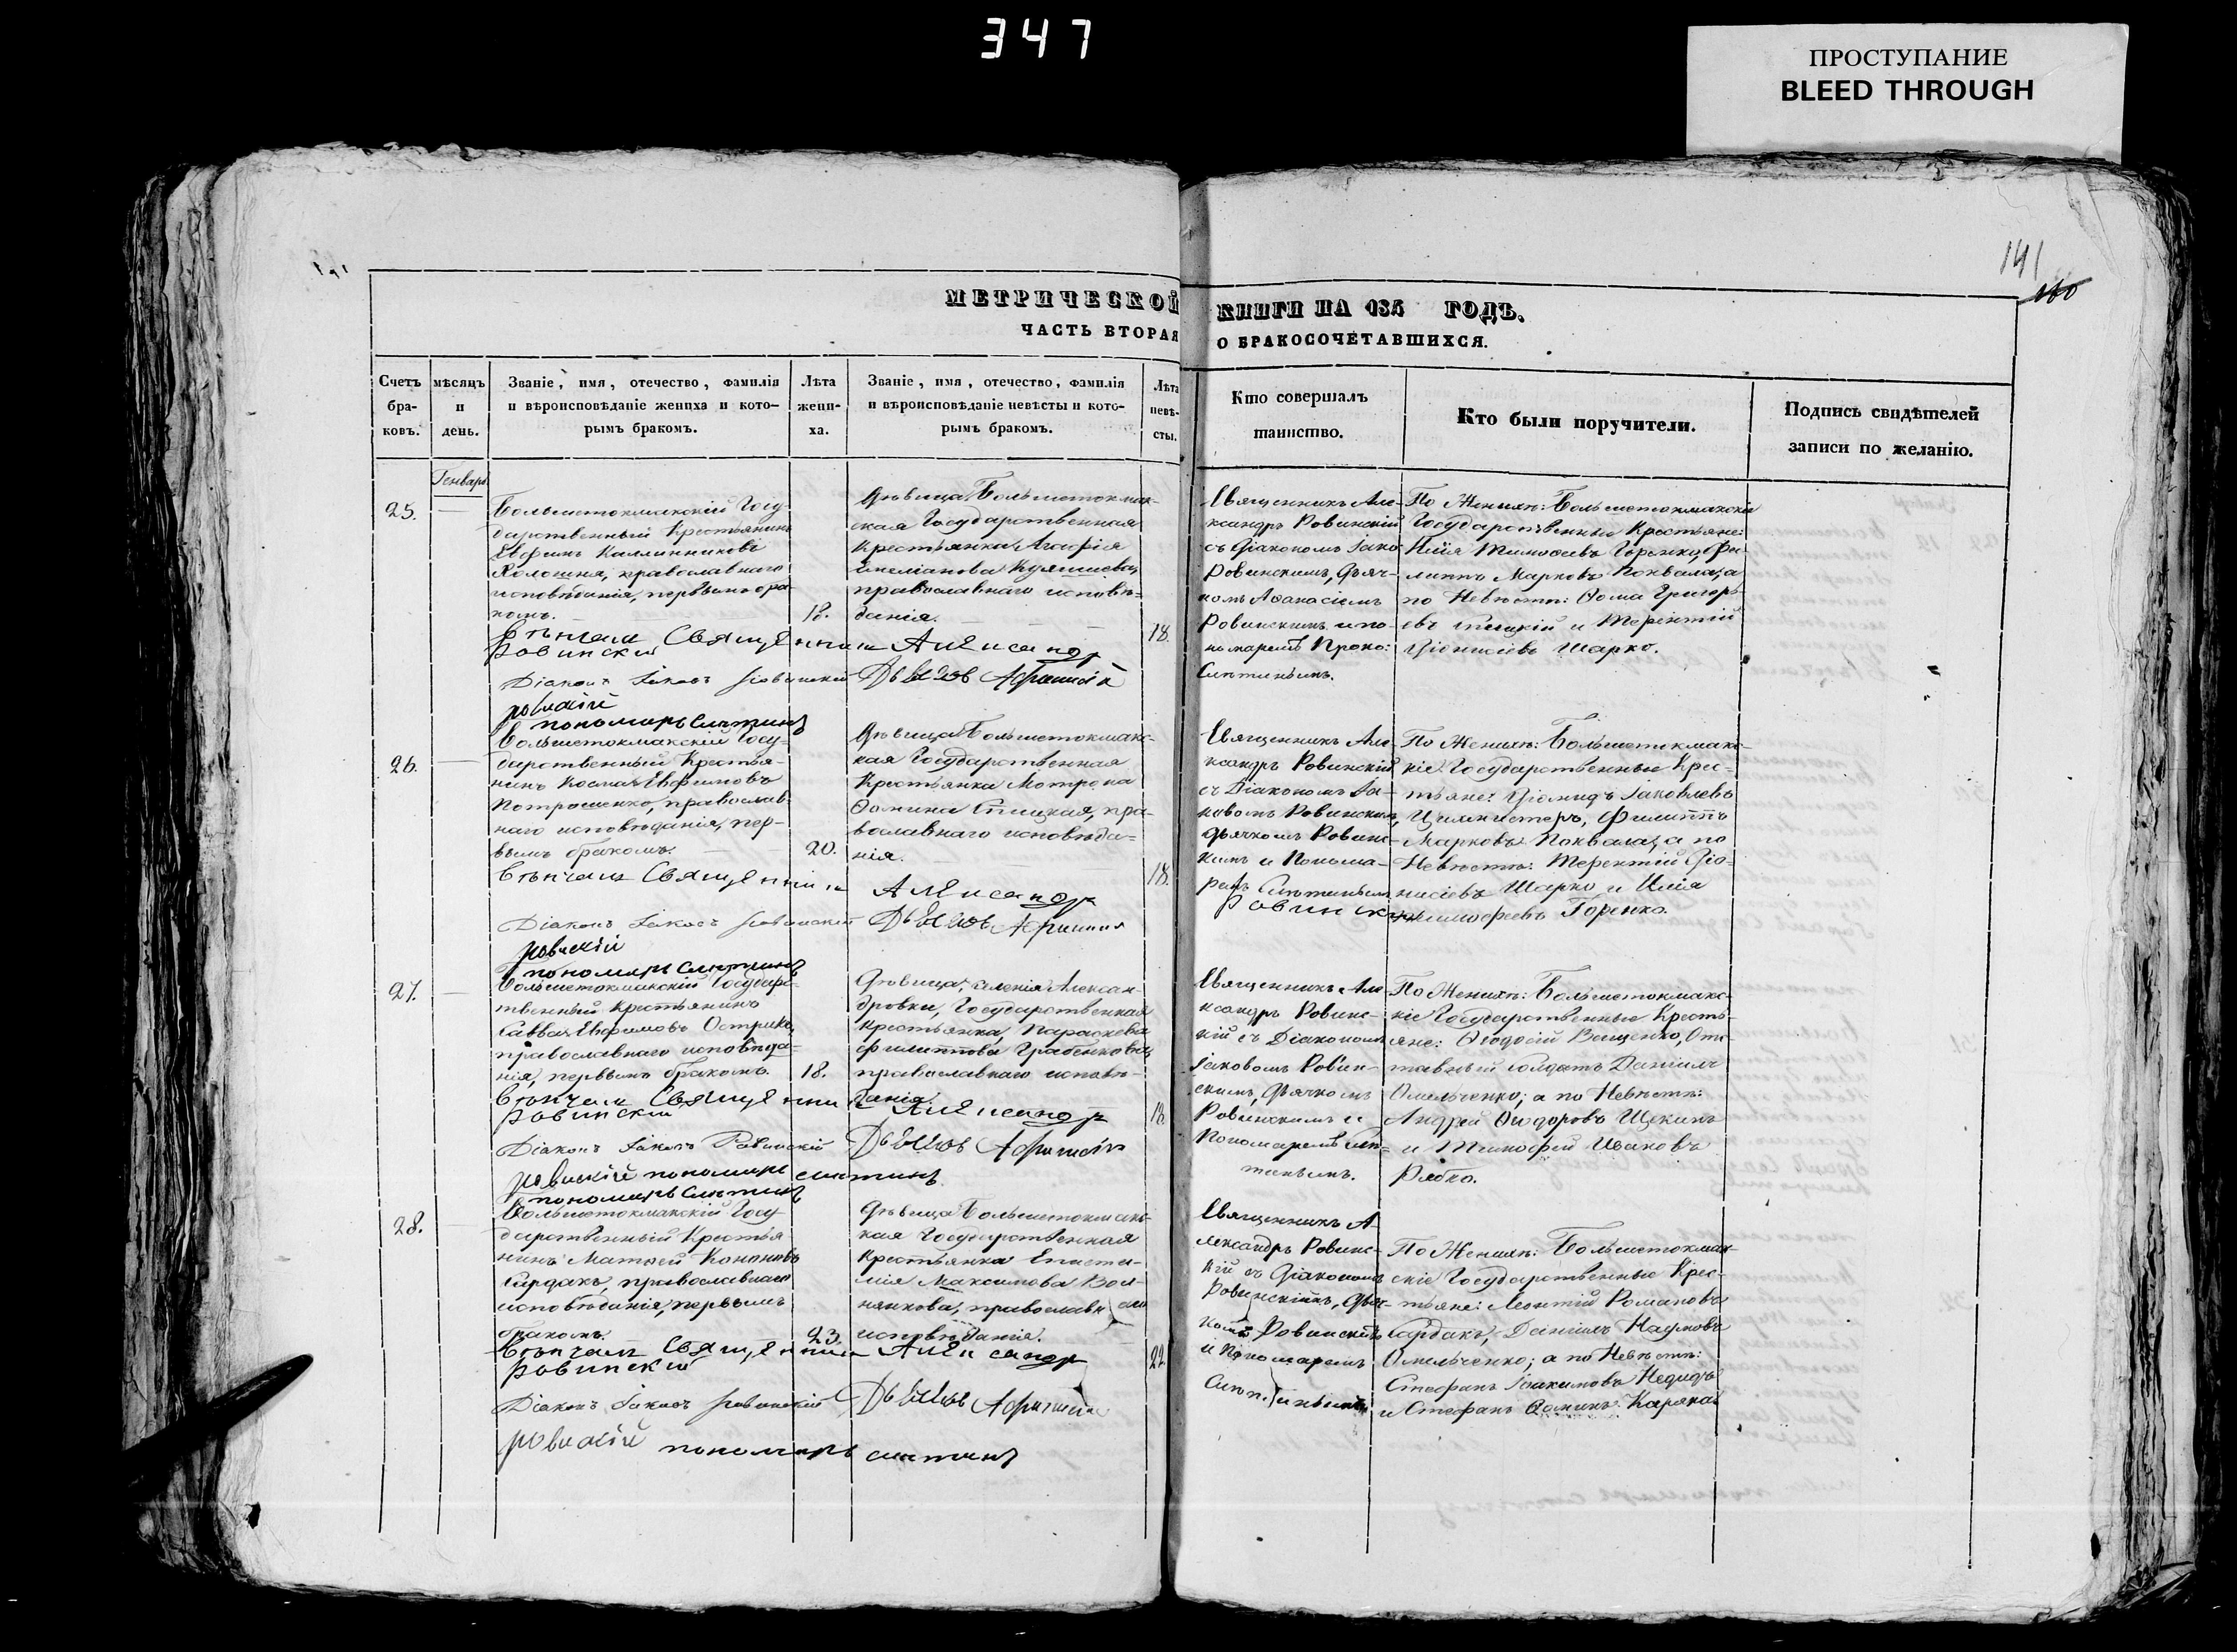 347
ПРОСТУПАНИЕ
BLEED THROUGH
141
160
МЕТРИЧЕСКОЙ КНИГИ НА 185 ГОДЪ.
ЧАСТЬ ВТОРАЯ О БРАКОСОЧЕТАВШИХСЯ.
Счетъ браковъ.
мѣсяцъ и день.
Званіе, имя, отечество, фамилія
и вѣроисповѣданіе жениха и кото-
рымъ бракомъ.
Лѣта
жени-
ха.
Званіе, имя, отечество, фамилія
и вѣроисповѣданіе невѣсты и кото-
рымъ бракомъ.
Лѣта
невѣ-
сты.
Кто совершалъ
таинство.
Кто были поручители.
Подпись свидѣтелей
записи по желанію.
Генварь
25.
Большетокмакскій Госу-
дарственный Крестьянинъ
Евфимъ Каллинниковъ
Холошня, православнаго
исповѣданія, первымъ бра-
комъ.
18.
Дѣвица Большетокмак-
ская Государственная
Крестьянка Агафія
Емеліанова
православнаго исповѣ-
данія.
18.
Священникъ Але-
ксандръ Ровинскій
съ Діакономъ Іако
Ровинскимъ, Дьяч-
комъ Аѳанасіемъ
Ровинскимъ и по-
номаремъ Проко:
Слѣтинымъ.
По Женихѣ: Большетокмакскіе
Государственные Крестьяне:
Илія Тимоѳеевъ Горенко, Фи-
липпъ Марковъ Похвала, а
по Невѣстѣ: Ѳома Григорь-
евъ Спицкій и Терентій
Діонисіевъ Шарко.
Вѣнчалъ Священникъ Александр
Ровинский
Діаконъ Іаковъ Ровинскій Дьячокъ Афанасій
Ровинскій
пономарь Слѣтинъ
26.
Большетокмакскій Госу-
дарственный Крестья-
нинъ Косма Евфимовъ
Потрошенко, православ-
наго исповѣданія, пер-
вымъ бракомъ.
20.
Дѣвица Большетокмакс-
кая Государственная
Крестьянка Мотрона
Ѳомина Спицкая, пра-
вославнаго исповѣда-
нія.
18.
Священникъ Але-
ксандръ Ровинскій
съ Діакономъ Іа-
ковомъ Ровинскимъ,
Дьячкомъ Ровинс-
кимъ и Понома-
ремъ Слѣтинымъ
По Женихѣ: Большетокмакс-
кіе Государственные Крес-
тьяне: Діомидъ Іаковлевъ
Цимистеръ, Филиппъ
Марковъ Похвала, а по
Невѣстѣ: Терентій Діо-
нисіевъ Шарко и Илія
Тимофеевъ Горенко.
Вѣнчалъ Священникъ Александр
Ровинский
Діаконъ Іаковъ Ровинскій Дьячокъ Афанасій
Ровинскій
пономарь Слѣтинъ
27.
Большетокмакскій Государс-
твенный Крестьянинъ
Савва Евфимовъ Острико,
православнаго исповѣда-
нія, первымъ бракомъ.
18.
Дѣвица, селенія Алексан-
дровки, Государственная
Крестьянка, Параскева
Филиппова Грабенкова,
православнаго исповѣ-
данія.
18.
Священникъ Але
ксандръ Ровинс-
кій съ Діакономъ
Іаковомъ Ровин-
скимъ, Дьячкомъ
Ровинскимъ и
Пономаремъ Слѣ-
тинымъ.
По Женихѣ: Большетокмакс-
кіе Государственные Кресть-
яне: Ѳеодосій Ващенко, Отс-
тавный Солдатъ Даніилъ
Омельченко; а по Невѣстѣ:
Андрей Ѳеодоровъ Щекинъ
и Тимофей Ивановъ
Рябко.
Вѣнчалъ Священникъ Александр
Ровинский
Діаконъ Іаковъ Ровинскій Дьячокъ Афанасій
Ровинскій пономарь Слѣтинъ
пономарь Слѣтинъ
28.
Большетокмакскій Госу-
дарственный Крестья-
нинъ Матѳей Кононовъ
Сардакъ, православнаго
исповѣданія, первымъ
бракомъ.
23.
Дѣвица Большетокмакс-
кая Государственная
Крестьянка Еписти-
мія Максимова
православнаго
исповѣданія.
22.
Священникъ А-
лександръ Ровинс-
кій съ Діакономъ
Ровинскимъ, Дьяч-
комъ Ровинскимъ
и Пономаремъ
Слѣтинымъ
По Женихѣ: Большетокмак-
скіе Государственные Крес-
тьяне: Леонтій Романовъ
Сардакъ, Даніилъ Наумовъ
Омельченко; а по Невѣстѣ:
Стефанъ Іоакимовъ
и Стефанъ Ѳоминъ
Вѣнчалъ Священникъ Александр
Ровинский
Діаконъ Іаковъ Ровинскій Дьячокъ Афанасій
Ровинскій пономарь Слѣтинъ